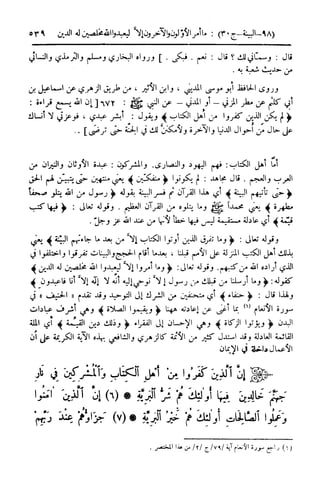 (٩٨-البينة-ج٣٠) : ما أمر الأولون والآخرون إلاّ ليعبدوا الله مخلصين له الدين ٥٣٩
قال : وسمّاني لك ؟ قال : نعم . فبكى . ] ورواه البخاري ومسلم والترمذي والنسائي
من حديث شعبة به .
وروى الحافظ أبو موسى المديني ، وابن الأثير ، من طريق الزهري عن اسماعيل بن
أبي كلثم عن مطر المزني – أو المدني – عن النبي ﷺ : ٦٧٢ [ إن الله يسمع قراءة :
﴿ لم يكن الذين كفروا من أهل الكتاب ﴾ ويقول : أبشر عبدي ، فوعزتي لا أنساك
على حال من أحوال الدنيا والآخرة ولأمكننّ لك في الجنة حتى ترضى ] ..
أمّا أهل الكتاب: فهم اليهود والنصارى. والمشركون : عبدة الأوثان والنيران من
العرب والعجم . قال مجاهد : لم يكونوا ﴿ منفكّين ﴾ يعني منتهين حتى يتبيّن لهم الحق
﴿ حتى تأتيهم البينة ﴾ أي هذا القرآن ثم فسر البينة بقوله ﴿ رسول من الله يتلو صحفاً
مطهرة ﴾ يعني محمداً ﷺ وما يتلوه من القرآن العظيم . وقوله تعالى : ﴿ فيها كتب
قيّمة ﴾ أي عادلة مستقيمة ليس فيها خطأ لأنها من عند الله عز وجلّ .
وقوله تعالى : ﴿ وما تفرق الذين أوتوا الكتاب إلاّ من بعد ما جاءتهم البيّنة ﴾ يعني
بذلك أهل الكتب المنزلة على الأمم قبلنا ، بعدما أقام الحجج والبينات تفرقوا واختلفوا في
الذي أراده الله من كتبهم. وقوله تعالى: ﴿ وما أمروا إلاّ ليعبدوا الله مخلصين له الدين ﴾
كقوله: ﴿ وما أرسلنا من قبلك من رسول إلاّ نوحي إليه أنّه لا إله إلاّ أنا فاعبدون ﴾
ولهذا قال : ﴿ حنفاء ﴾ أي متحنفين من الشرك إلى التوحيد وقد تقدم ء الحنيف ، في
سورة الأنعام (١) بما أغنى عن إعادته ههنا ﴿ ويقيموا الصلاة ﴾ وهي أشرف عبادات
البدن ﴿ ويؤتوا الزكاة ﴾ وهي الإحسان إلى الفقراء ﴿ وذلك دين القيّمة ﴾ أي الملة
القائمة العادلة وقد استدل كثير من الأئمة كالزهري والشافعي بهذه الآية الكريمة على أن
الأعمال داخلة في الإيمان
إِنَّ ٱلَّذِينَ كَفَرُوا مِنْ أَهْلِ ٱلْكِتَابِ وَٱلْمُشْرِكِينَ فِي نَارِ
جَهَنَّمَ خَالِدِينَ فِيهَا أُولَئِكَ هُمْ شَرُّ ٱلْبَرِيَّةِ * (٦) إِنَّ ٱلَّذِينَ آمَنُوا
وَعَمِلُوا ٱلصَّالِحَاتِ أُولَئِكَ هُمْ خَيْرُ ٱلْبَرِيَّةِ * (٧) جَزَاؤُهُمْ عِنْدَ رَبِّهِمْ
(١) راجع سورة الأنعام آية /٧٩/ ج /٢/ من هذا المختصر .